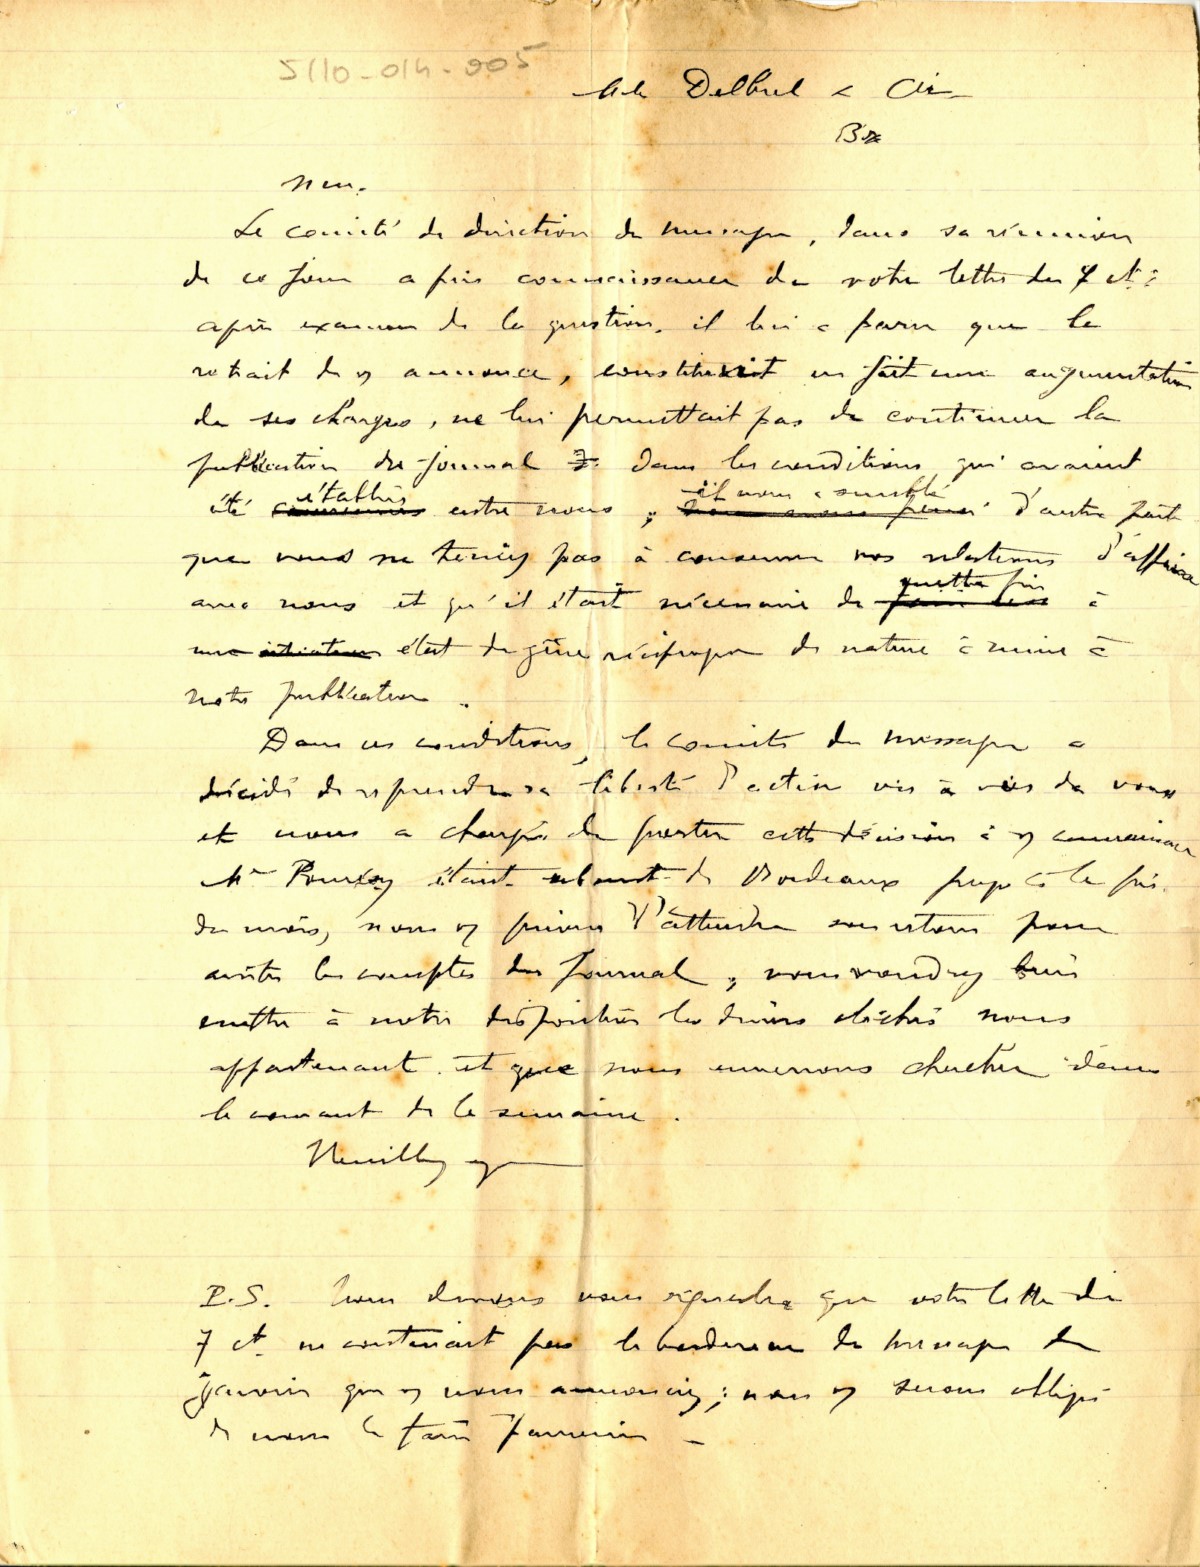 5110-014-005
Delbrel & Cie
Bx
Le comité de direction du message, dans sa réunion
de ce jour a pris connaissance de votre lettre du 7 ct :
après examen de la question, il lui a paru que le
retrait de v/ annonce, constituait en fait une augmentation
de ses charges, ne lui permettait pas de continuer la
publication du journal dans les conditions qui avaient
été établies entre nous ; il nous a semblé d'autre part
que vous ne teniez pas à conserver vos relations d'affaire
avec nous et qu'il était nécessaire de mettre fin à
une état de gêne réciproque de nature à nuire à
notre publication.
Dans ces conditions, le comité du message a
décidé de reprendre sa liberté d'action vis à vis de vous
et nous a chargé de porter cette décision à v/ connaissance
Mr étant absent de Bordeaux jusqu'à la fin
du mois, nous v/ prions d'attendre son retour pour
arrêter les comptes du Journal ; vous voudrez bien
mettre à notre disposition les divers clichés nous
appartenant et que nous enverrons chercher dans
le courant de la semaine.
Veuillez
P.S. Nous devons vous répondre que votre lettre du
7 ct. ne contenait pas le bordereau du message de
janvier que v/ nous annonciez ; nous v/ serons obligés
de nous le faire parvenir _